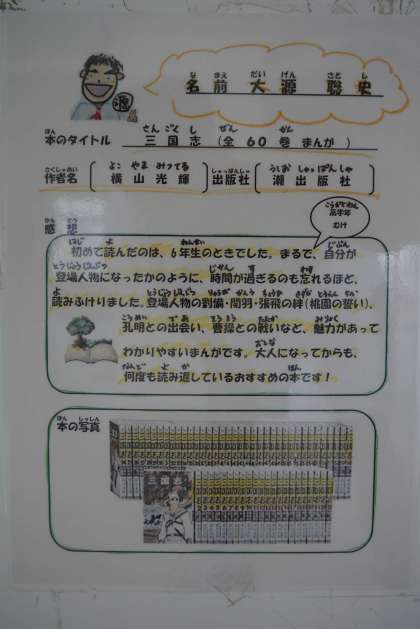 名前 大源 聡史
本のタイトル 三国志(全60巻 まんが)
作者名 〔横山光輝〕 出版社 〔潮出版社〕
高学年
むけ
感想
初めて読んだのは、6年生のときでした。まるで、自分が
登場人物になったかのように、時間が過ぎるのも忘れるほど、
読みふけりました。登場人物の劉備・関羽・張飛の絆(桃園の誓い)、
孔明との出会い、曹操との戦いなど、魅力があって
わかりやすいまんがです。大人になってからも、
何度も読み返しているおすすめの本です!
本の写真
三国志